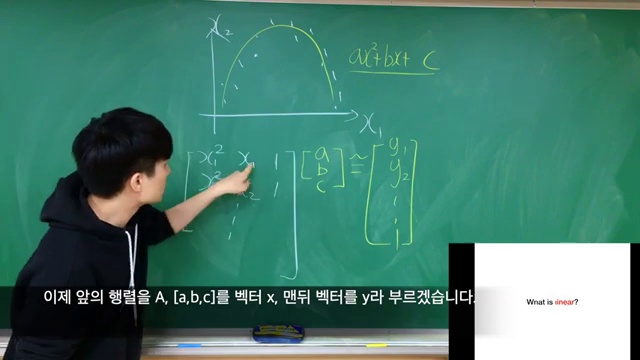 x₂
ax²+bx+ c
x₁
x₁² x₁ 1
x₂² x₂ 1
[a b c] ≃ [y₁ y₂
이제 앞의 행렬을 A, [a,b,c]를 벡터 x, 맨뒤 벡터를 y라 부르겠습니다.
What is linear?